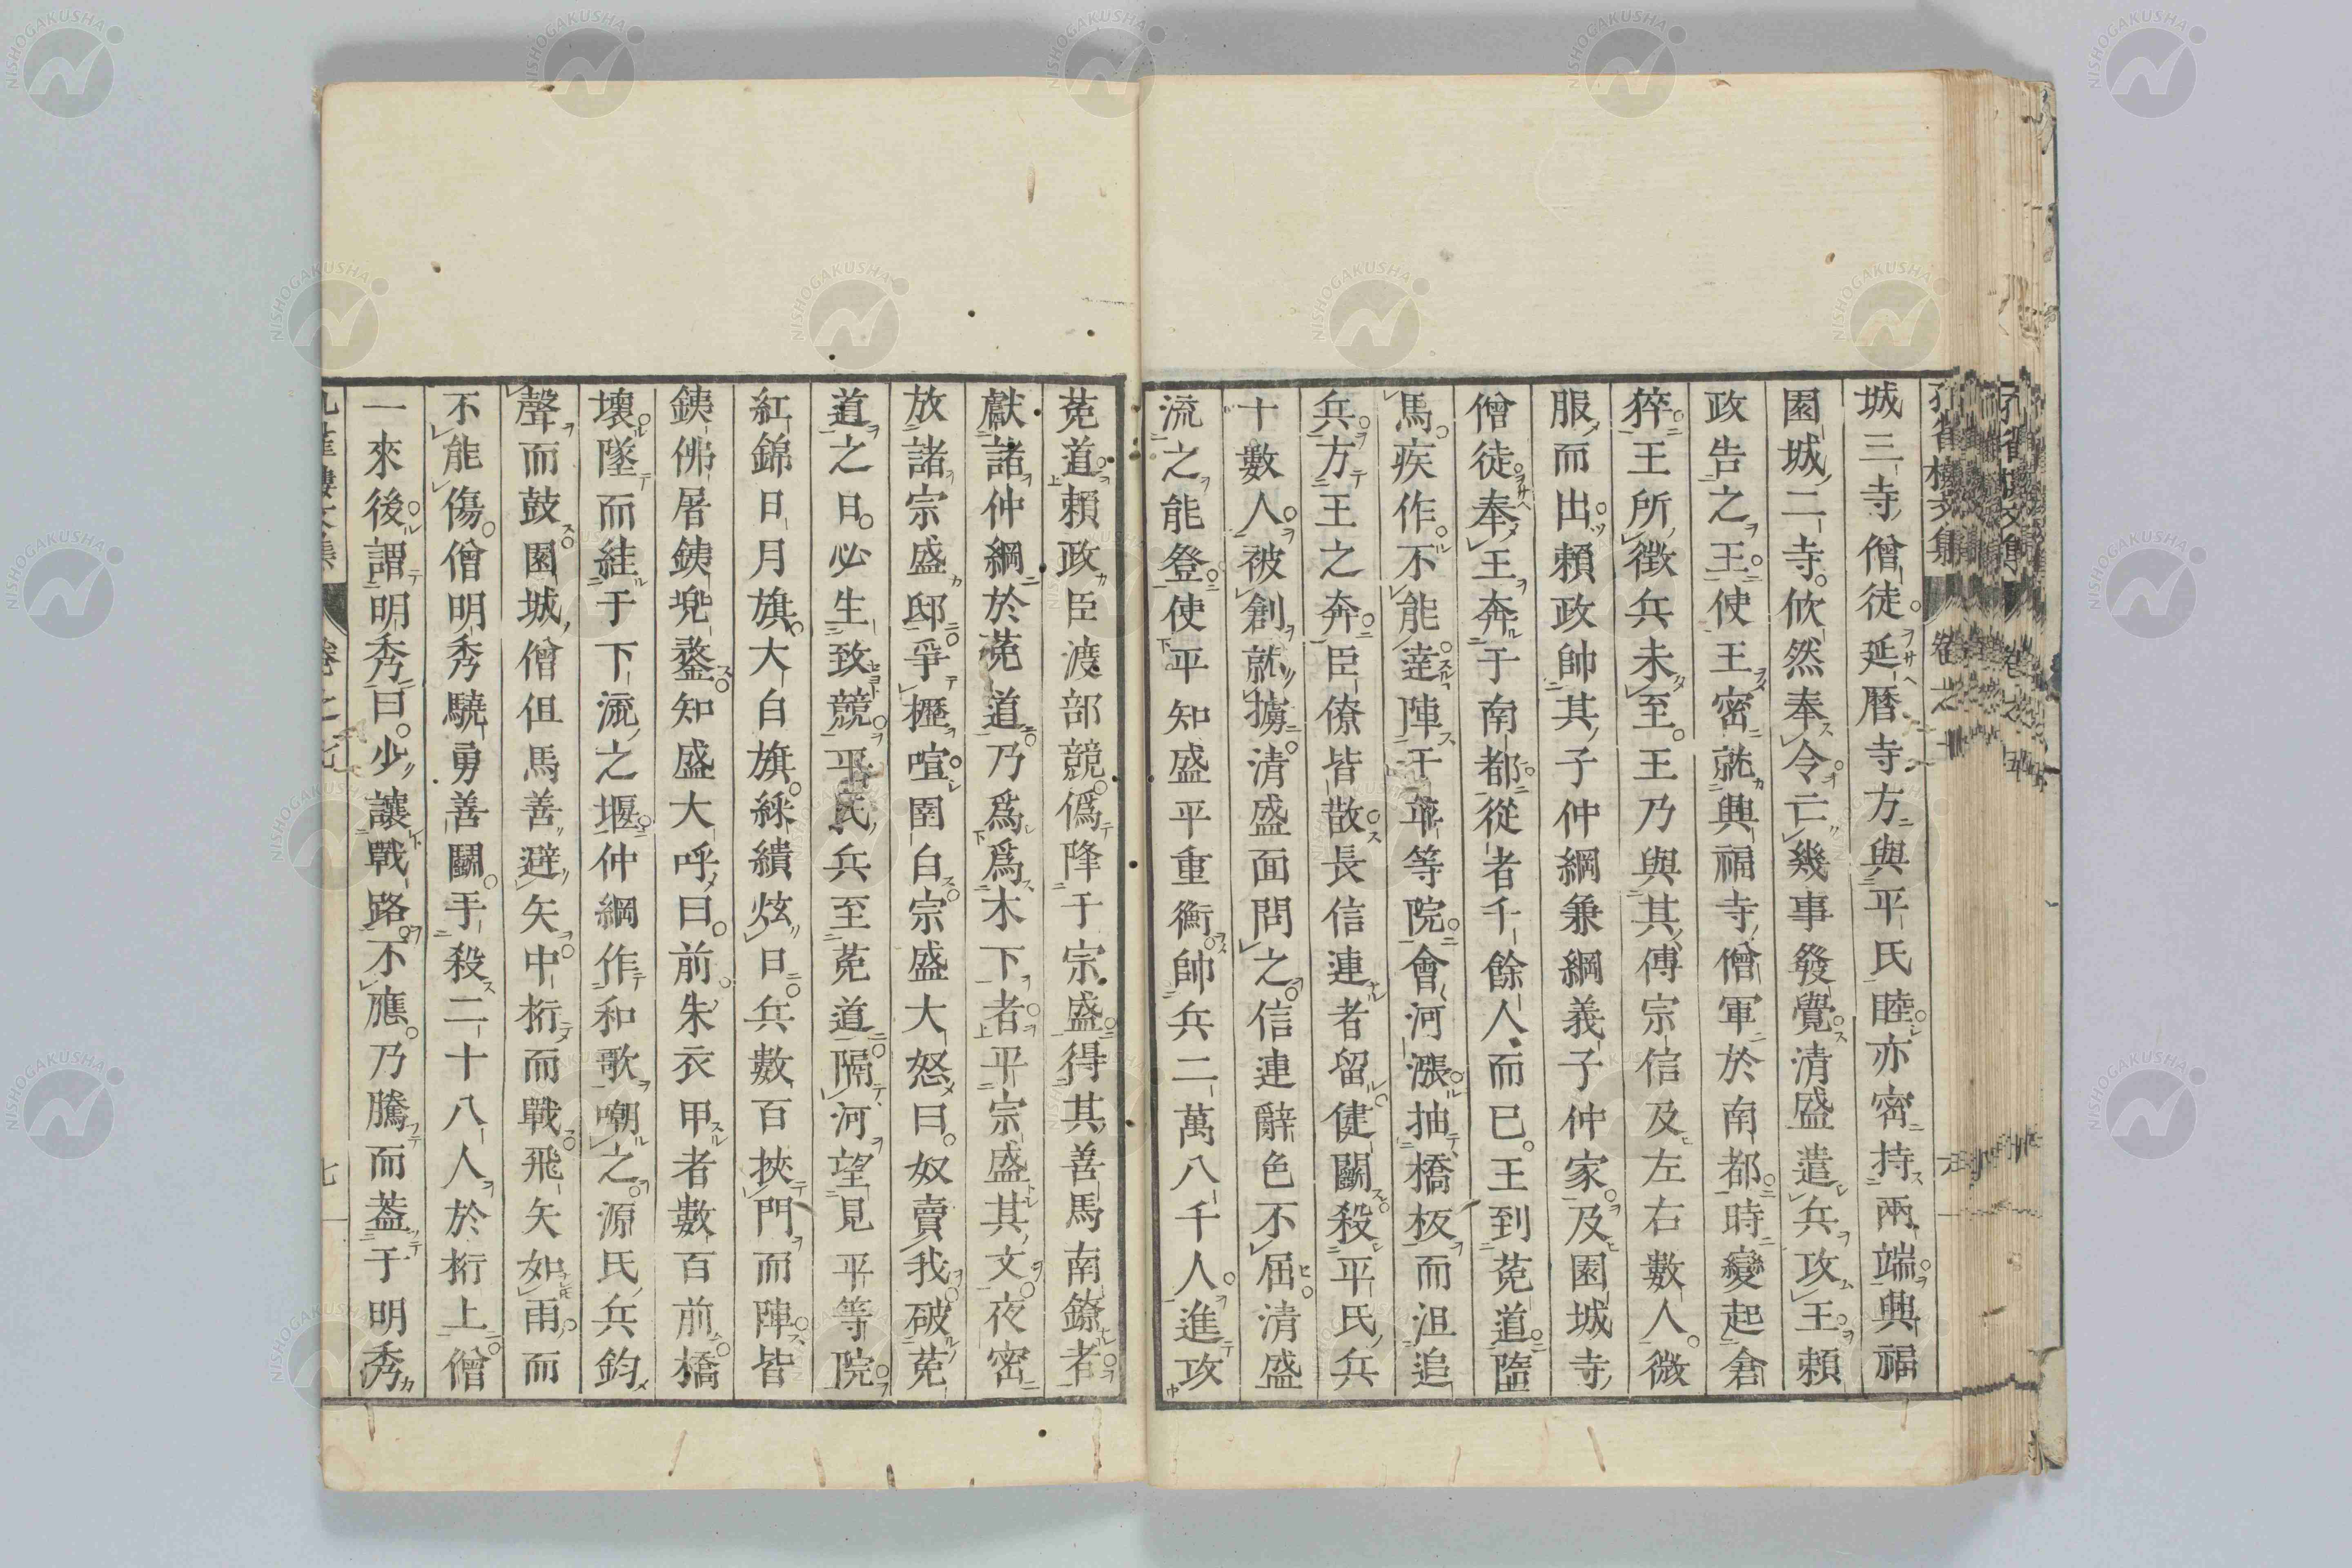 城三寺僧徒延暦寺方與平氏睦亦密持兩端興福
園城二寺佽然奉令亡幾事發覺清盛遣兵攻王頼
政告之王使王密就興福寺僧軍於南都時變起倉
猝王所徴兵未至王乃與其傅宗信及左右數人微
服而出頼政帥其子仲綱兼綱義子仲家及園城寺
僧徒奉王奔于南都從者千餘人而已王到菟道墮
馬疾作不能達陣于平等院會河漲抽橋板而沮追
兵方王之奔臣僚皆散長信連者留健鬭殺平氏兵
十數人被創就擄清盛面問之信連辭色不屈清盛
流之能登使平知盛平重衡帥兵二萬八千人進攻
菟道頼政臣渡部競僞降于宗盛得其善馬南鐐者
獻諸仲綱於菟道乃爲爲木下者平宗盛其文夜密
放諸宗盛邸爭櫪喧圉白宗盛大怒曰奴賣我破菟
道之日必生致競平氏兵至菟道隔河望見平等院
紅錦日月旗大白旗綵繢炫日兵數百挾門而陣皆
銕佛屠銕兜鍪知盛大呼曰前朱衣甲者數百前橋
壞墜而絓于下流之堰仲綱作和歌嘲之源氏兵鈞
聲而鼓園城僧但馬善避矢中桁而戰飛矢如雨而
不能傷僧明秀驍勇善鬭手殺二十八人於桁上僧
一來後謂明秀曰少讓戰路不應乃騰而葢于明秀